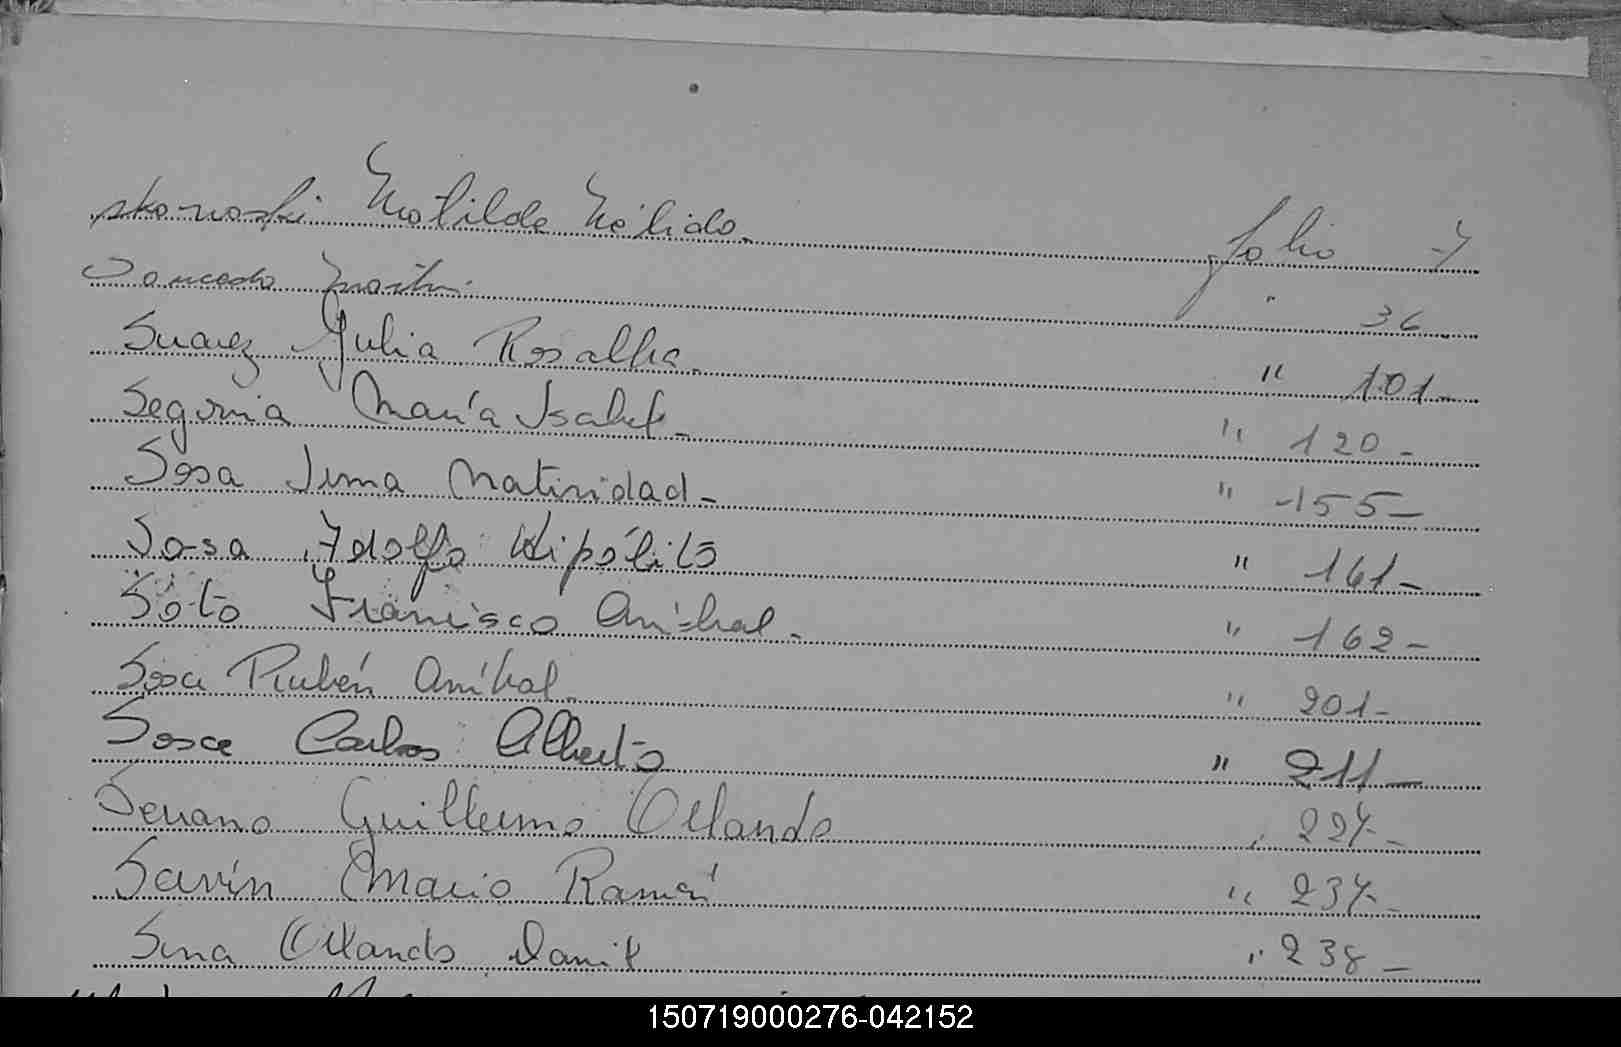 Skonoski Matilde Nélida. folio 7
Saucedo Martin. " 36
Suarez Julia Rosalba. " 101-
Segovia María Isabel- " 120-
Sosa Irma Natividad- " 155-
Sosa Adolfo Hipólito " 161-
Soto Francisco Aníbal. " 162-
Sosa Rubén Aníbal. " 201-
Sosa Carlos Alberto " 211-
Serrano Guillermo Orlando 227-
Savín Mario Ramón " 237-
Orlando " 238-
150719000276-042152